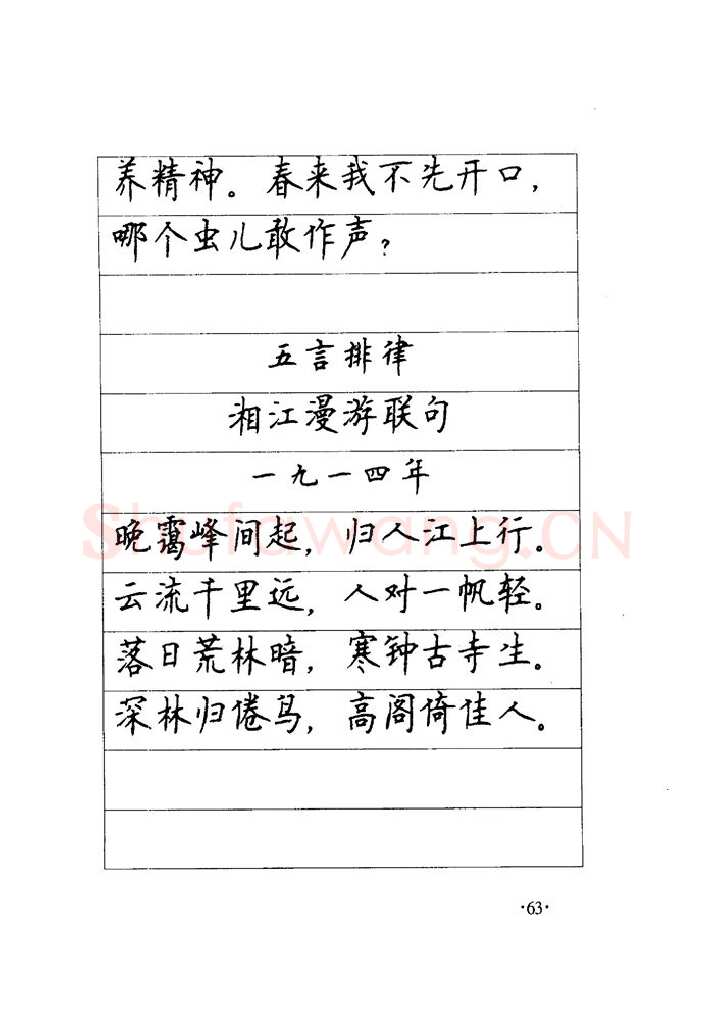 养精神。春来我不先开口，
哪个虫儿敢作声？
五言排律
湘江漫游联句
一九一四年
晚霭峰间起，归人江上行。
云流千里远，人对一帆轻。
落日荒林暗，寒钟古寺生。
深林归倦鸟，高阁倚佳人。
Shufawang.CN
·63·